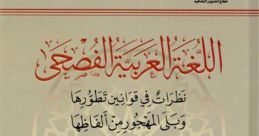 قطاع الشؤون الثقافية
اللُّغَةُ العَرَبِيَّةُ الفُصْحَى
نَظَرَاتٌ فِي قَوَانِينِ تَطَوُّرِهَا
وَبِلَى المَهْجُورِ مِنْ أَلفَاظِهَا